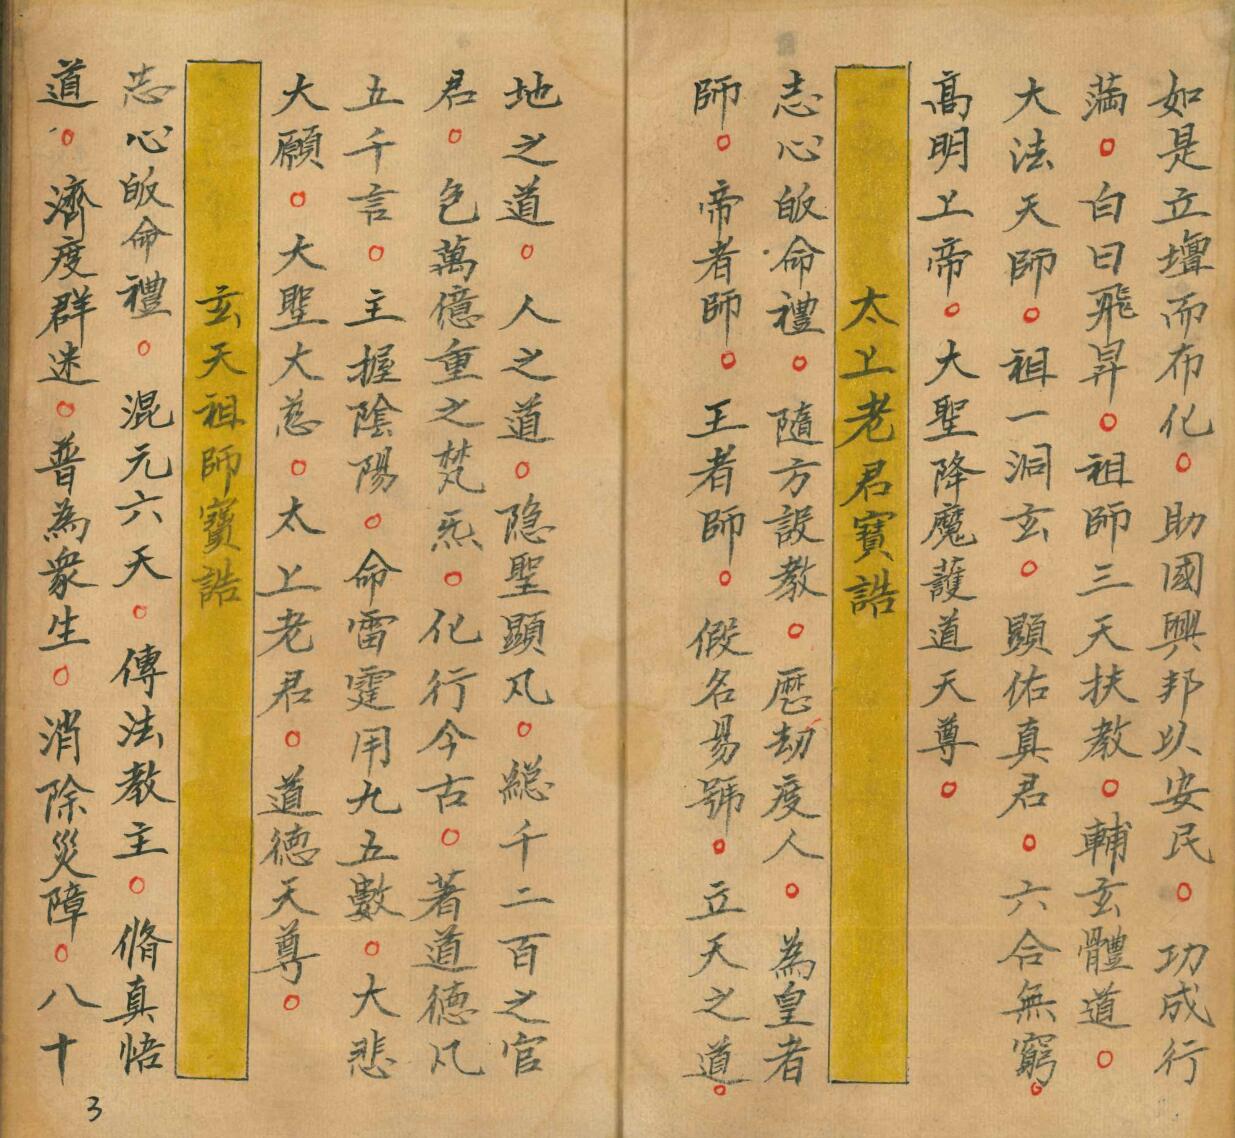 如是立壇而布化○助國興邦以安民○功成行
満○白日飛昇○祖師三天扶教○輔玄體道○
大法天師○祖一洞玄○顯佑真君○六合無窮○
高明上帝○大聖降魔護道天尊○
太上老君寶誥
志心皈命禮○隨方設教○歷劫度人○為皇者
師○帝者師○王者師○假名易號○立天之道○
地之道○人之道○隐聖顯凡○総千二百之官
君○包萬億重之梵炁○化行今古○著道德凡
五千言○主握陰陽○命雷霆用九五數○大悲
大願○大聖大慈○太上老君○道德天尊○
玄天祖師寶誥
志心皈命禮○混元六天○傳法教主○脩真悟
道○濟度群迷○普為衆生○消除災障○八十
3